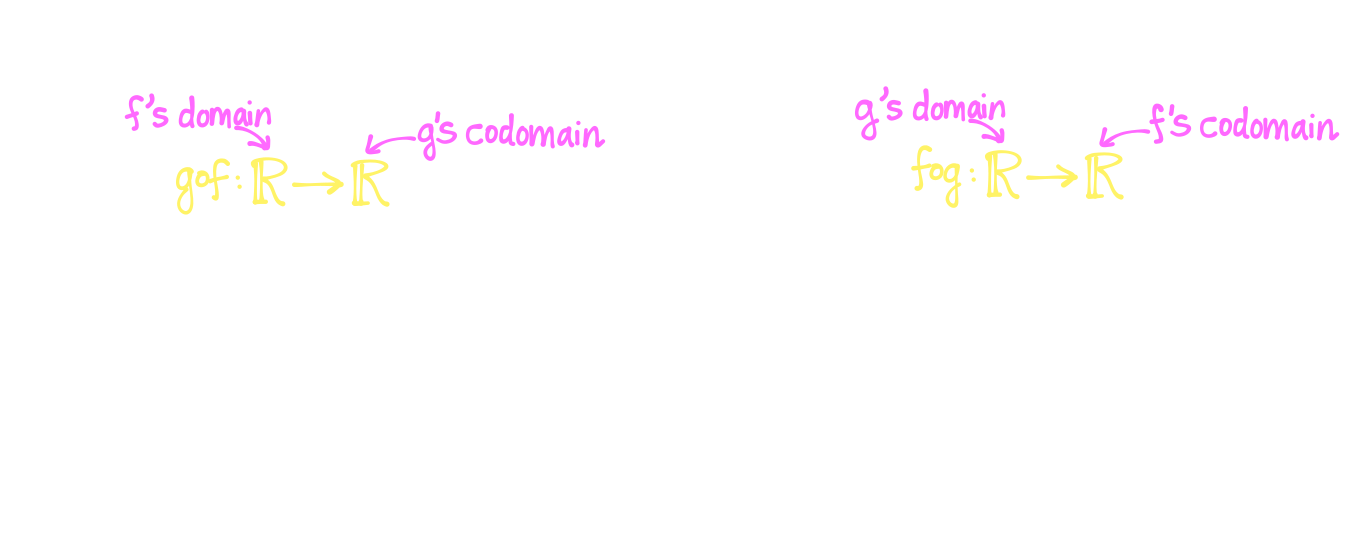 f's domain
g's codomain
gof: ℝ → ℝ
g's domain
f's codomain
fog: ℝ → ℝ